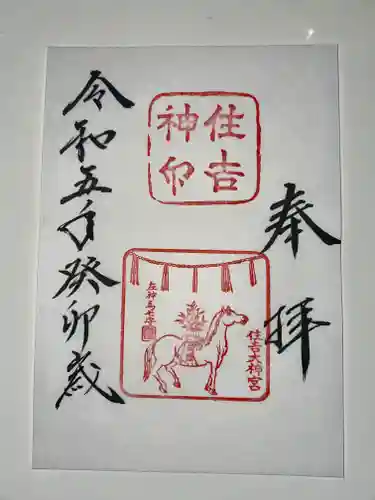 奉拝
住吉
神印
住吉大神宮
令和五年癸卯歳